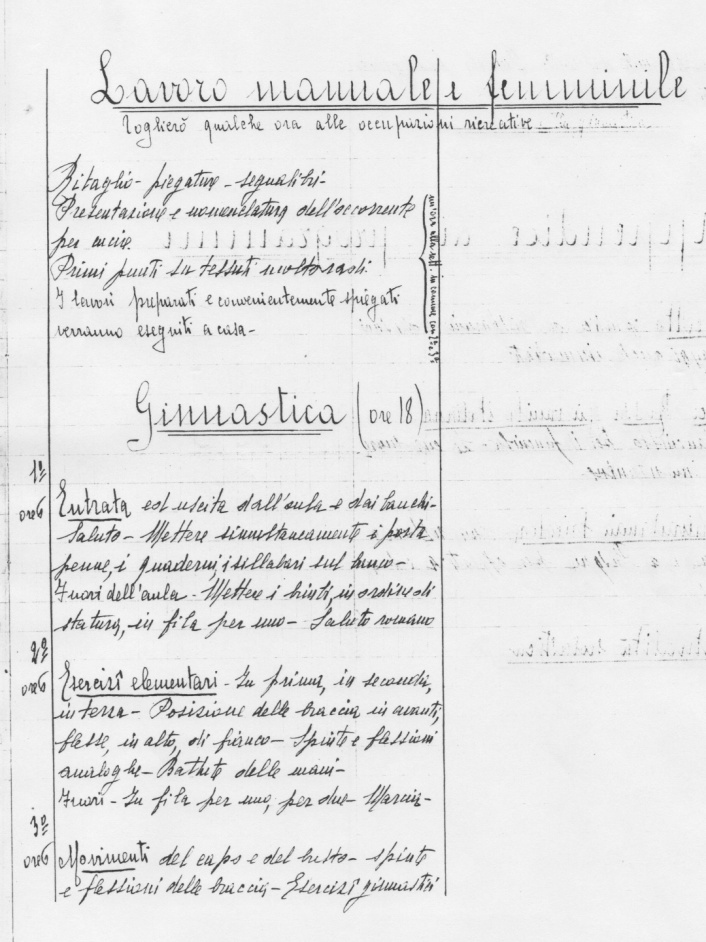 Lavoro manuale e femminile
Toglierò qualche ora alle occupazioni ricreative
Ritaglio - piegature - segnalibri -
Presentazione e nomenclatura dell'occorrente
per cucire.
Primi punti su tessuti molto radi
I lavori preparati e convenientemente spiegati
verranno eseguiti a casa -
un'ora alla sett. in comune con 2ª e 3ª
Ginnastica (ore 18)
1º
ore 6
Entrata ed uscita dall'aula e dai banchi -
Saluto - Mettere simultaneamente i porta
penne, i quaderni, i sillabari sul banco -
Fuori dell'aula - Mettere i bimbi, in ordine di
statura, in fila per uno - Saluto romano
2º
ore 6
Esercizî elementari - In prima, in seconda,
in terza - Posizione delle braccia in avanti,
flesse, in alto, di fianco - Spinte e flessioni
analoghe - Battute delle mani -
Fuori - In fila per uno, per due - Marcia -
3º
ore 6
Movimenti del capo e del busto - spinte
e flessioni delle braccia - Esercizî ginnastici